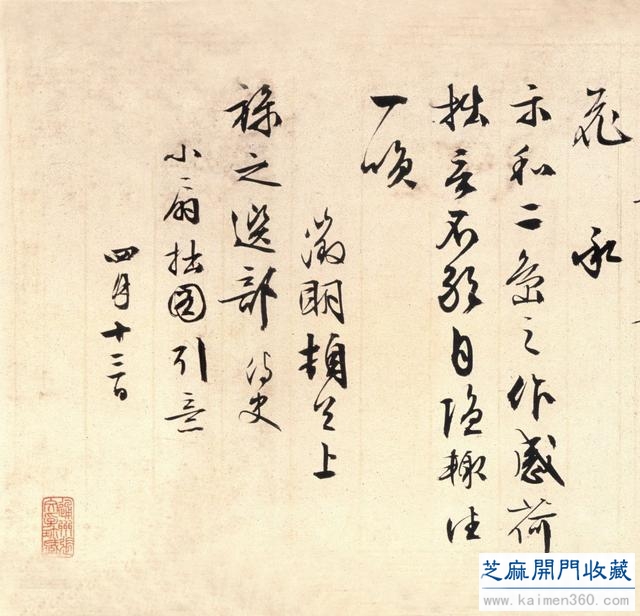 承
示和二之作感荷
拙言不能自隐輙往
一
徵明頓首上
祿之選部侍史
小扇拙圖引意
四月十三日
芝麻開門收藏
www.kaimen360.com